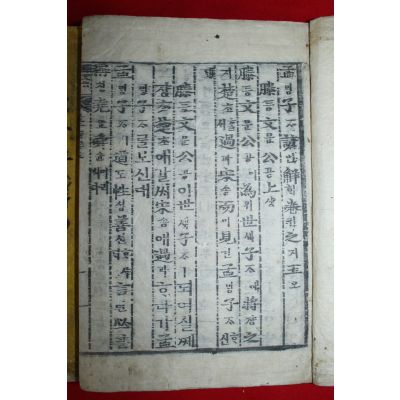 孟ᄆᆡᆼ子ᄌᆞ諺언解ᄒᆡ卷권之지五오
滕등文문公공上샹
滕등文문公공이爲위世셰子ᄌᆞ애將쟝之
지楚초ᄒᆞᆯᄉᆡ過과宋송而이見견孟ᄆᆡᆼ子ᄌᆞᄒᆞ신
滕등文문公공이世셰子ᄌᆞㅣ되여실ᄯᅢ
쟝ᄎᆞᆺ楚초애갈ᄉᆡ宋송애過과ᄒᆞ다가孟
ᄆᆡᆼ子ᄌᆞᄅᆞᆯ보신대
孟ᄆᆡᆼ子ᄌᆞㅣ道도性셩善션ᄒᆞ샤ᄃᆡ言언必필